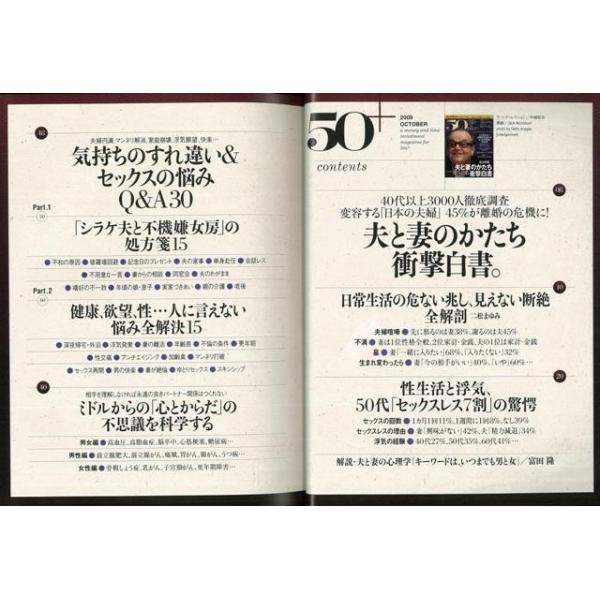 50+
2009
OCTOBER
a money and time
investment
magazine for
life!
contents
50+
夫と妻のかたち
衝撃白書
08
40代以上3000人徹底調査
変容する「日本の夫婦」45%が離婚の危機に!
夫と妻のかたち
衝撃白書。
10
日常生活の危ない兆し、見えない断絶
全解剖 二松まゆみ
夫婦喧嘩 ● 先に怒るのは妻38%、謝るのは夫45%
不満 ● 妻は1位性格全般、2位家計・金銭、夫の1位は家計・金銭
墓 ● 妻「一緒に入りたい」68%、「入りたくない」32%
生まれ変わったら ● 妻「今の相手がいい」40%、「いや」60%…
20
性生活と浮気、
50代「セックスレス7割」の驚愕
セックスの回数 ● 1カ月1回11%、1週間に1回8%、なし39%
セックスレスの理由 ● 妻「興味がない」42%、夫「精力減退」34%
浮気の経験 ● 40代27%、50代35%、60代41%…
解説・夫と妻の心理学「キーワードは、いつまでも男と女」/富田 隆
48
夫婦円満、マンネリ解消、家庭崩壊、浮気願望、快楽…
気持ちのすれ違い&
セックスの悩み
Q&A30
Part.1
50
「シラケ夫と不機嫌女房」の
処方箋15
● 不和の原因 ● 修羅場回避 ● 記念日のプレゼント ● 夫の家事 ● 単身赴任 ● 会話レス
● 不用意な一言 ● 妻からの相談 ● 同窓会 ● 夫のわがまま
● 嗜好の不一致 ● 年頃の娘・息子 ● 実家づきあい ● 親の介護 ● 老後
Part.2
60
健康、欲望、性…人に言えない
悩み全解決15
● 深夜帰宅・外泊 ● 浮気発覚 ● 妻の離活 ● 年齢差 ● 不倫の条件 ● 更年期
● 性交痛 ● アンチエイジング ● 加齢臭 ● マンネリ打破
● セックス再開 ● 男の快楽 ● 妻が絶倫 ● ゆとりセックス ● スキンシップ
40
相手を理解しなければ永遠の良きパートナー関係はつくれない
ミドルからの「心とからだ」の
不思議を科学する
男女編 ● 高血圧、高脂血症、脳卒中、心筋梗塞、糖尿病…
男性編 ● 前立腺肥大、前立腺がん、痛風、胃がん、腸がん、うつ病…
女性編 ● 骨粗しょう症、乳がん、子宮頸がん、更年期障害…